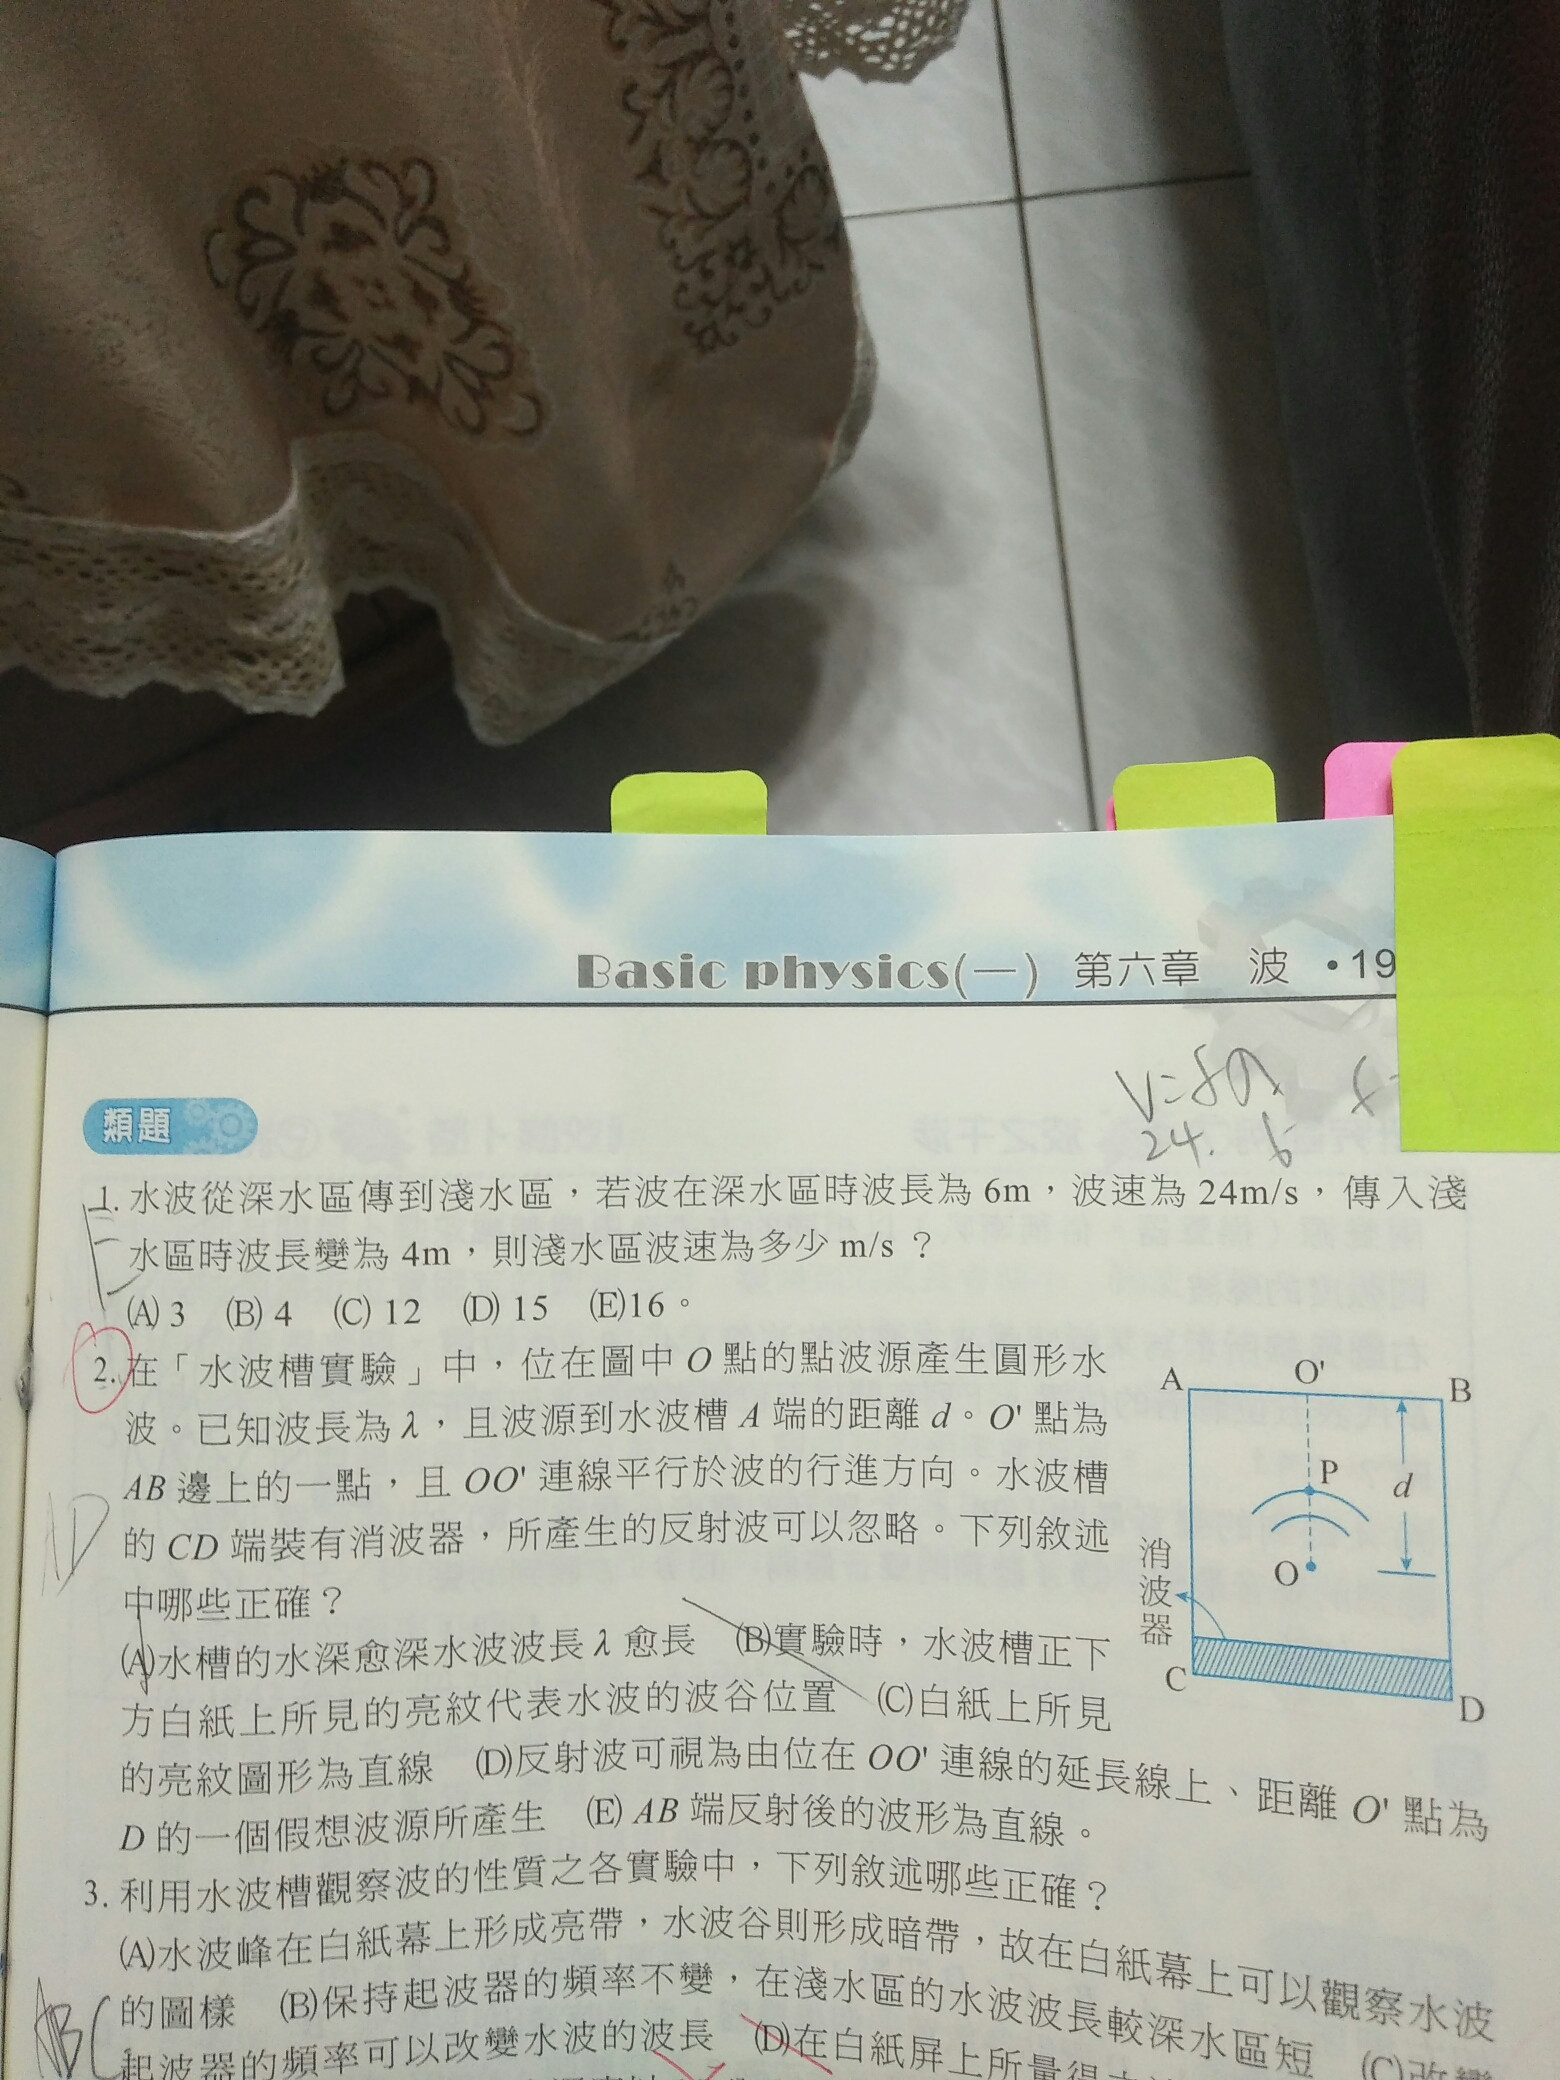 Basic physics(一) 第六章 波 •19
V=fλ f
24. 6
類題
1. 水波從深水區傳到淺水區，若波在深水區時波長為 6m，波速為 24m/s，傳入淺
水區時波長變為 4m，則淺水區波速為多少 m/s？
(A) 3 (B) 4 (C) 12 (D) 15 (E)16。
E
2. 在「水波槽實驗」中，位在圖中 O 點的點波源產生圓形水
波。已知波長為 λ，且波源到水波槽 A 端的距離 d。O' 點為
AB 邊上的一點，且 OO' 連線平行於波的行進方向。水波槽
的 CD 端裝有消波器，所產生的反射波可以忽略。下列敘述
中哪些正確？
AD
(A)水槽的水深愈深水波波長 λ 愈長 (B)實驗時，水波槽正下
方白紙上所見的亮紋代表水波的波谷位置 (C)白紙上所見
的亮紋圖形為直線 (D)反射波可視為由位在 OO' 連線的延長線上、距離 O' 點為
D 的一個假想波源所產生 (E) AB 端反射後的波形為直線。
A O' B
P
d
O
消波器
C D
3. 利用水波槽觀察波的性質之各實驗中，下列敘述哪些正確？
(A)水波峰在白紙幕上形成亮帶，水波谷則形成暗帶，故在白紙幕上可以觀察水波
的圖樣 (B)保持起波器的頻率不變，在淺水區的水波波長較深水區短 (C)改變
起波器的頻率可以改變水波的波長 (D)在白紙屏上所量得
ABC